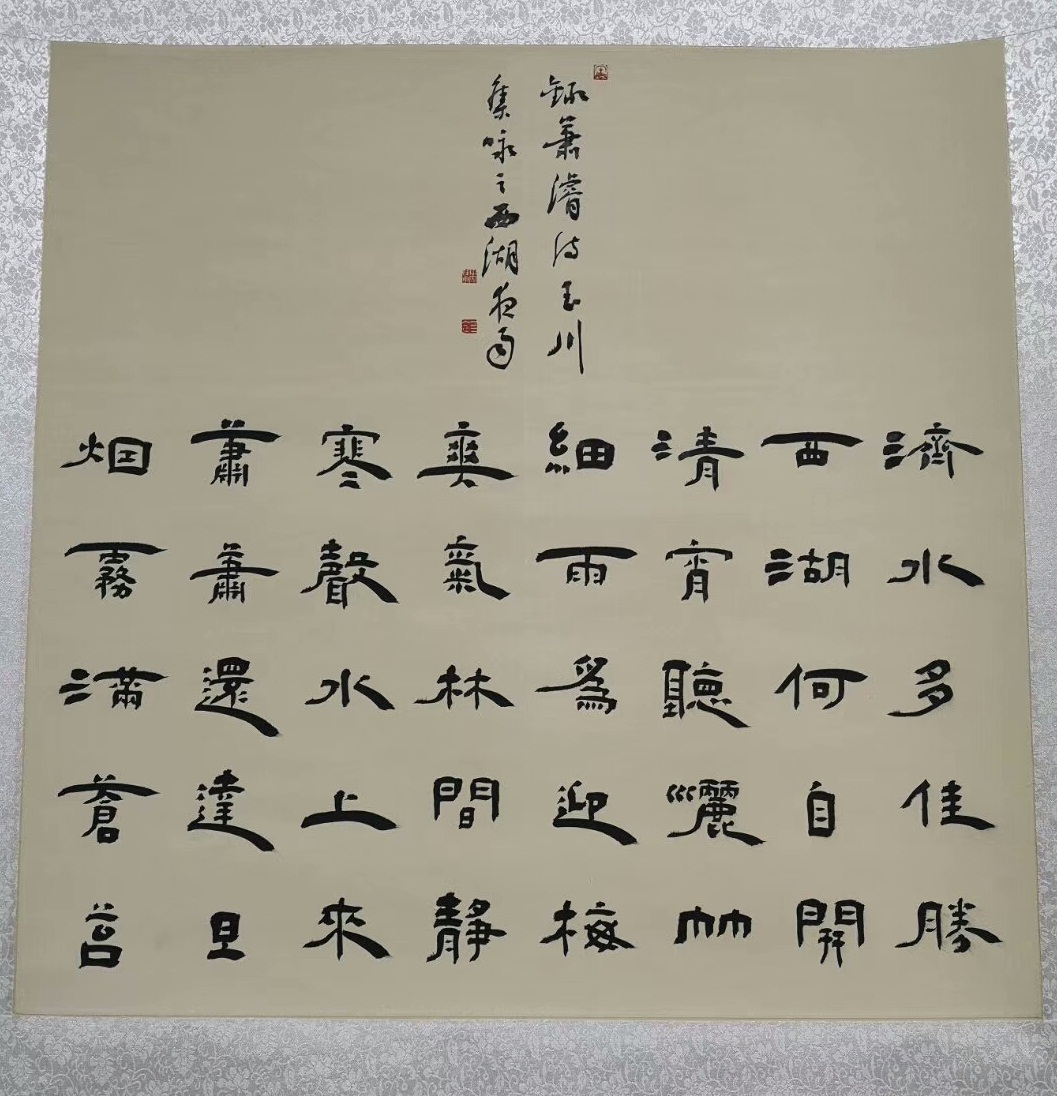 録蕭濬诗玉川
集咏之西湖夜雨
濟水多佳勝
西湖何自開
清宵聽灑竹
細雨爲迎梅
爽氣林間靜
寒聲水上來
蕭蕭還達旦
烟霧滿蒼苔